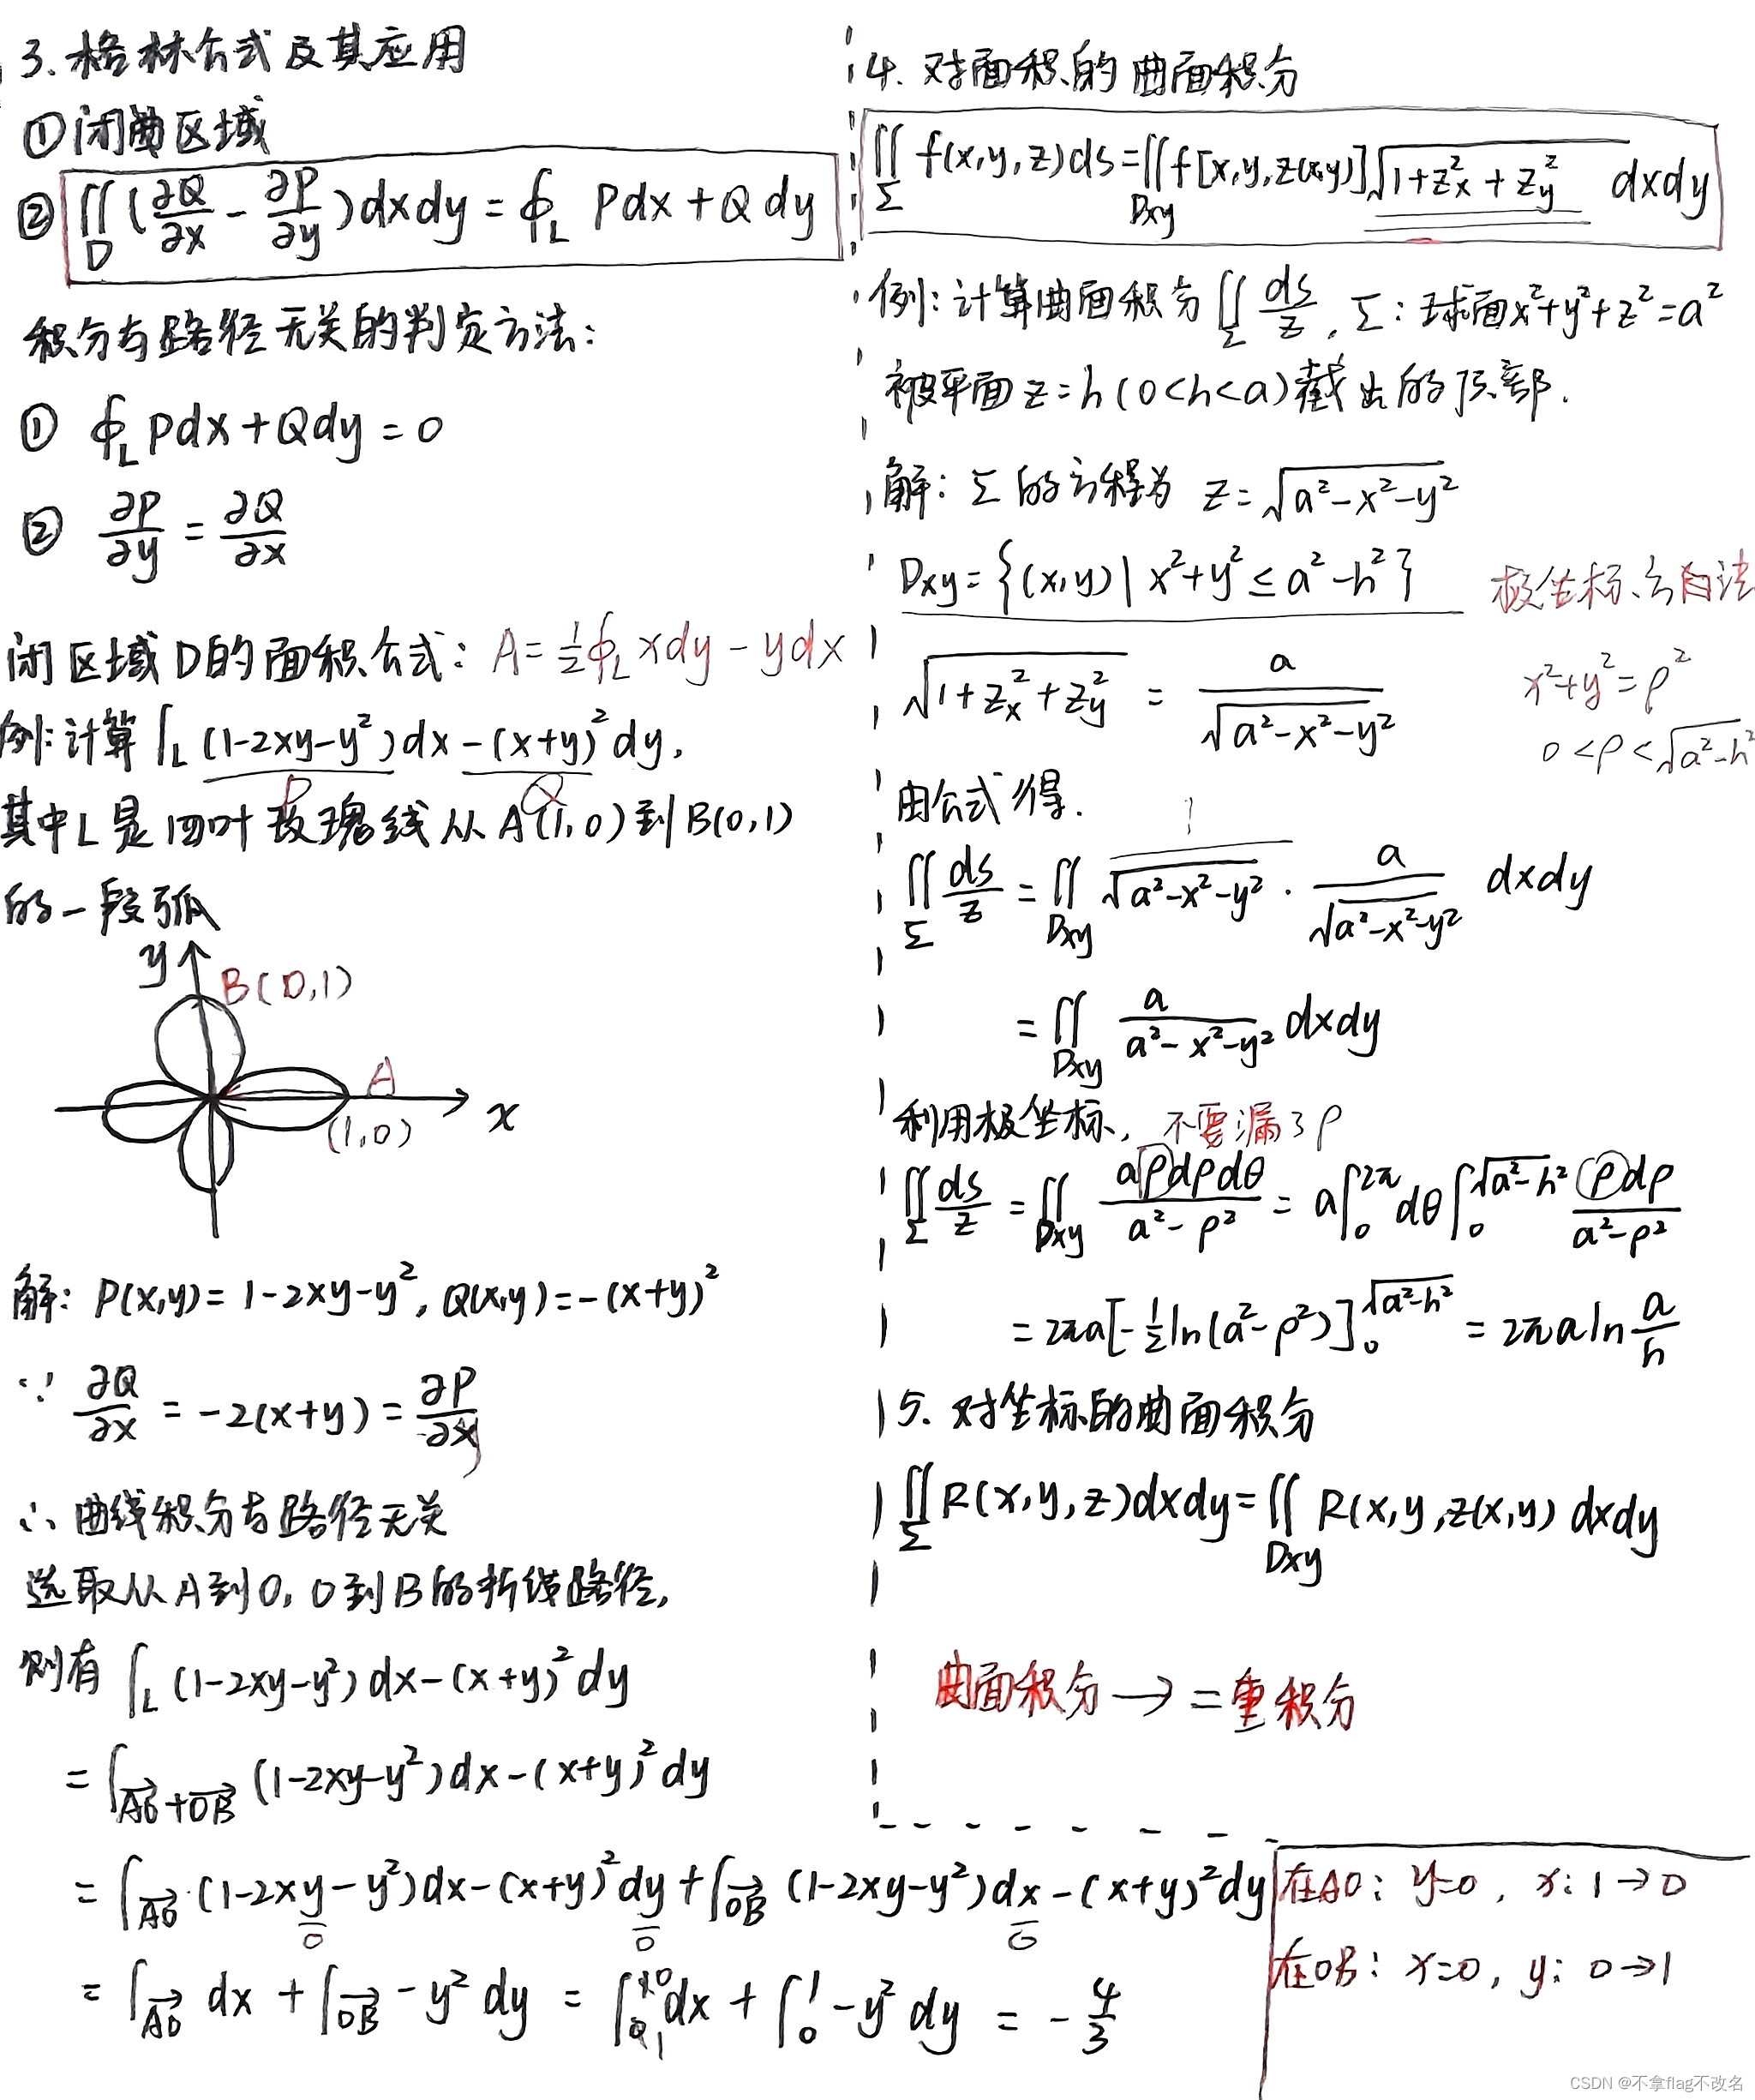 3. 格林公式及其应用
①闭曲区域
② ∬_D (∂Q/∂x - ∂P/∂y)dxdy = ∮_L Pdx+Qdy
积分与路径无关的判定方法:
① ∮_L Pdx+Qdy=0
② ∂P/∂y = ∂Q/∂x
闭区域D的面积公式: A=½∮_L xdy-ydx
例:计算∫_L (1-2xy-y²)dx-(x+y)²dy,
P Q
其中L是四叶玫瑰线从A(1,0)到B(0,1)
的一段弧
y B(0,1)
A
(1,0) x
解: P(x,y)=1-2xy-y², Q(x,y)=-(x+y)²
∵ ∂Q/∂x = -2(x+y) = ∂P/∂y
∴ 曲线积分与路径无关
选取从A到O,O到B的折线路径,
则有 ∫_L (1-2xy-y²)dx-(x+y)²dy
= ∫_{AO+OB} (1-2xy-y²)dx-(x+y)²dy
= ∫_{AO} (1-2xy-y²)dx-(x+y)²dy + ∫_{OB} (1-2xy-y²)dx-(x+y)²dy
0 0 0
= ∫_{AO} dx + ∫_{OB} -y²dy = ∫_1^0 dx + ∫_0^1 -y²dy = -4/3
在AO: y=0, x: 1→0
在OB: x=0, y: 0→1
4. 对面积的曲面积分
∬_Σ f(x,y,z)ds=∬_{Dxy} f[x,y,z(x,y)]√(1+z_x²+z_y²) dxdy
例:计算曲面积分∬_Σ ds/z, Σ:球面x²+y²+z²=a²
被平面z=h(0<h<a)截出的顶部.
解: Σ的方程为 z=√(a²-x²-y²)
Dxy={(x,y)| x²+y²≤a²-h²}
极坐标,
x²+y²=ρ²
0<ρ<√(a²-h²)
√(1+z_x²+z_y²) = a/√(a²-x²-y²)
由公式得.
∬_Σ ds/z = ∬_{Dxy} 1/√(a²-x²-y²) · a/√(a²-x²-y²) dxdy
= ∬_{Dxy} a/(a²-x²-y²) dxdy
利用极坐标, 不要漏了ρ
∬_Σ ds/z = ∬_{Dxy} aρdρdθ/(a²-ρ²) = a∫_0^{2π}dθ∫_0^{√(a²-h²)} ρdρ/(a²-ρ²)
= 2πa[-½ln(a²-ρ²)]_0^{√(a²-h²)} = 2πa ln a/h
5. 对坐标的曲面积分
∬_Σ R(x,y,z)dxdy=∬_{Dxy} R(x,y,z(x,y) dxdy
曲面积分→二重积分
CSDN @不拿flag不改名